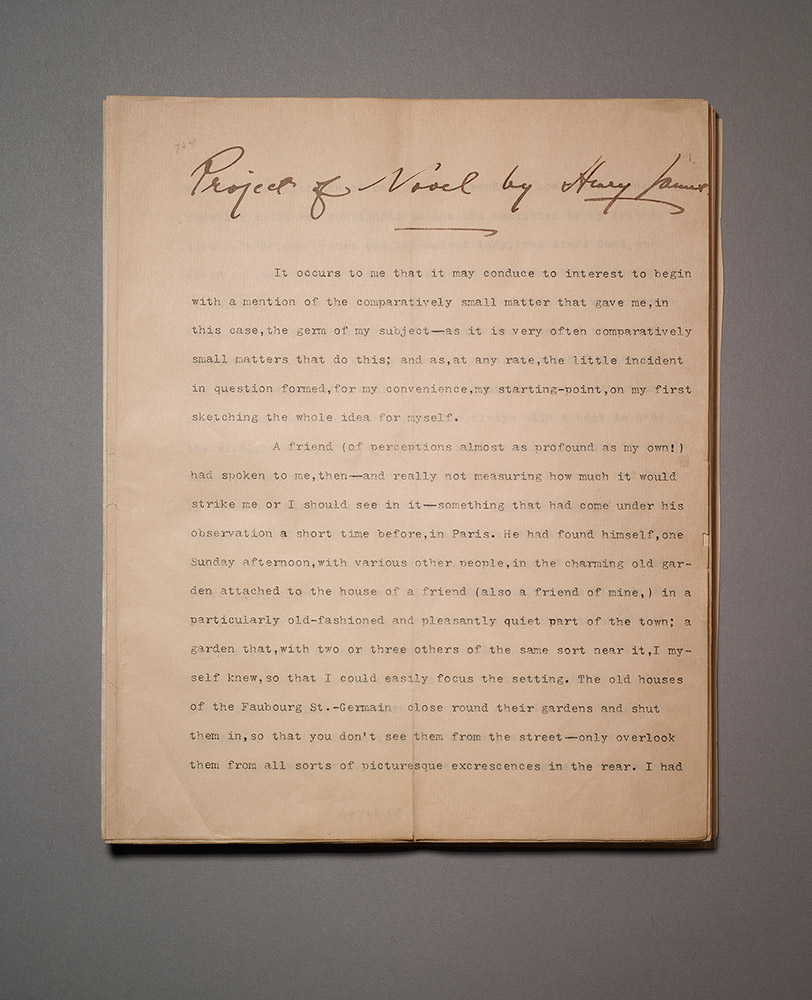 Project of Novel by Henry James.
It occurs to me that it may conduce to interest to begin
with a mention of the comparatively small matter that gave me,in
this case,the germ of my subject—as it is very often comparatively
small matters that do this; and as,at any rate,the little incident
in question formed,for my convenience,my starting-point,on my first
sketching the whole idea for myself.
A friend (of perceptions almost as profound as my own!)
had spoken to me,then—and really not measuring how much it would
strike me or I should see in it—something that had come under his
observation a short time before,in Paris. He had found himself,one
Sunday afternoon,with various other people,in the charming old gar-
den attached to the house of a friend (also a friend of mine,) in a
particularly old-fashioned and pleasantly quiet part of the town; a
garden that,with two or three others of the same sort near it,I my-
self knew,so that I could easily focus the setting. The old houses
of the Faubourg St.-Germain close round their gardens and shut
them in,so that you don't see them from the street—only overlook
them from all sorts of picturesque excrescences in the rear. I had